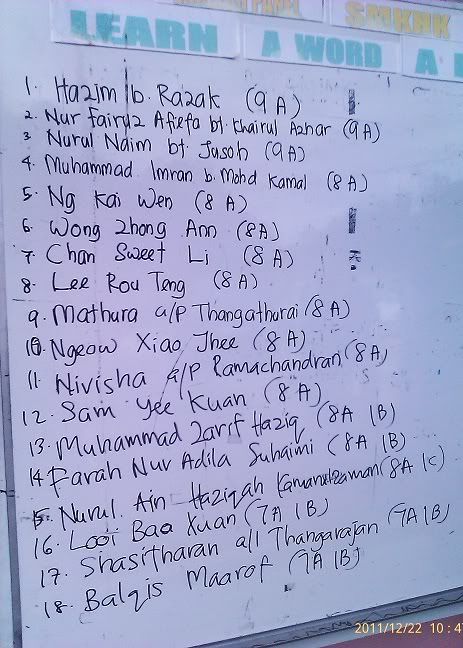 PANEL
SMKHK
LEARN A WORD A
1. Hazim b. Razak (9A)
2. Nur Fairuz Afiefa bt. Khairul Azhar (9A)
3 Nurul Naim bt. Jusoh (9A)
4. Muhammad Imran b. Mohd Kamal (8A)
5. Ng Kai Wen (8A)
6. Wong Zhong Ann (8A)
7. Chan Sweet Li (8A)
8. Lee Rou Teng (8A)
9. Mathura a/p Thangathurai (8A)
10. Ngeow Xiao Jhee (8A)
11. Nivisha a/p Ramachandran (8A)
12. Sam Yee Kuan (8A)
13. Muhammad Zarif Haziq (8A 1B)
14 Farah Nur Adila Suhaimi (8A 1B)
15. Nurul Ain Haziqah (8A 1C)
16. Looi Bao Xuan (7A 1B)
17. Shasitharan a/l Thangarajan (7A 1B)
18. Balqis Maarof (7A 1B)
2011/12/22 10:47